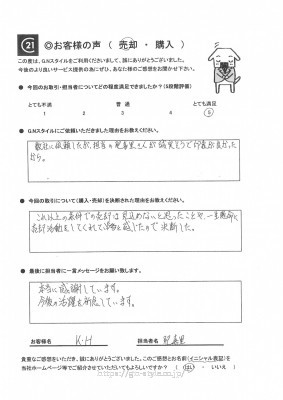 21 ◎お客様の声 ( 売却 ・ 購入 )
この度は、G.Nスタイルをご利用くださいまして、誠にありがとうございました。
今後のより良いサービス提供の為にぜひ、あなた様のご感想をお聞かせ下さい。
● 今回のお取引・担当者についてどの程度満足できましたか？(5段階評価)
とても不満 普通 とても満足
1 2 3 4 5
● G.Nスタイルにご依頼いただきました理由をお教えください。
数社に依頼したが、担当の さんが誠実そうで印象が良かった
から。
● 今回の取引について(購入・売却)を決断された理由をお教えください。
これ以上の条件での売却は見込めないと思ったことや、一生懸命に
売却活動をしてくれて と感じたので決断した。
● 最後に担当者に一言メッセージをお願い致します。
本当に感謝しています。
今後の活躍を期待しています。
お客様名 K・H 担当者名
貴重なご意見をいただき、誠にありがとうございました。このご感想とお名前(イニシャル表記)を
当社ホームページ等でご紹介させていただいてもよろしいですか？ ( はい ・ いいえ )